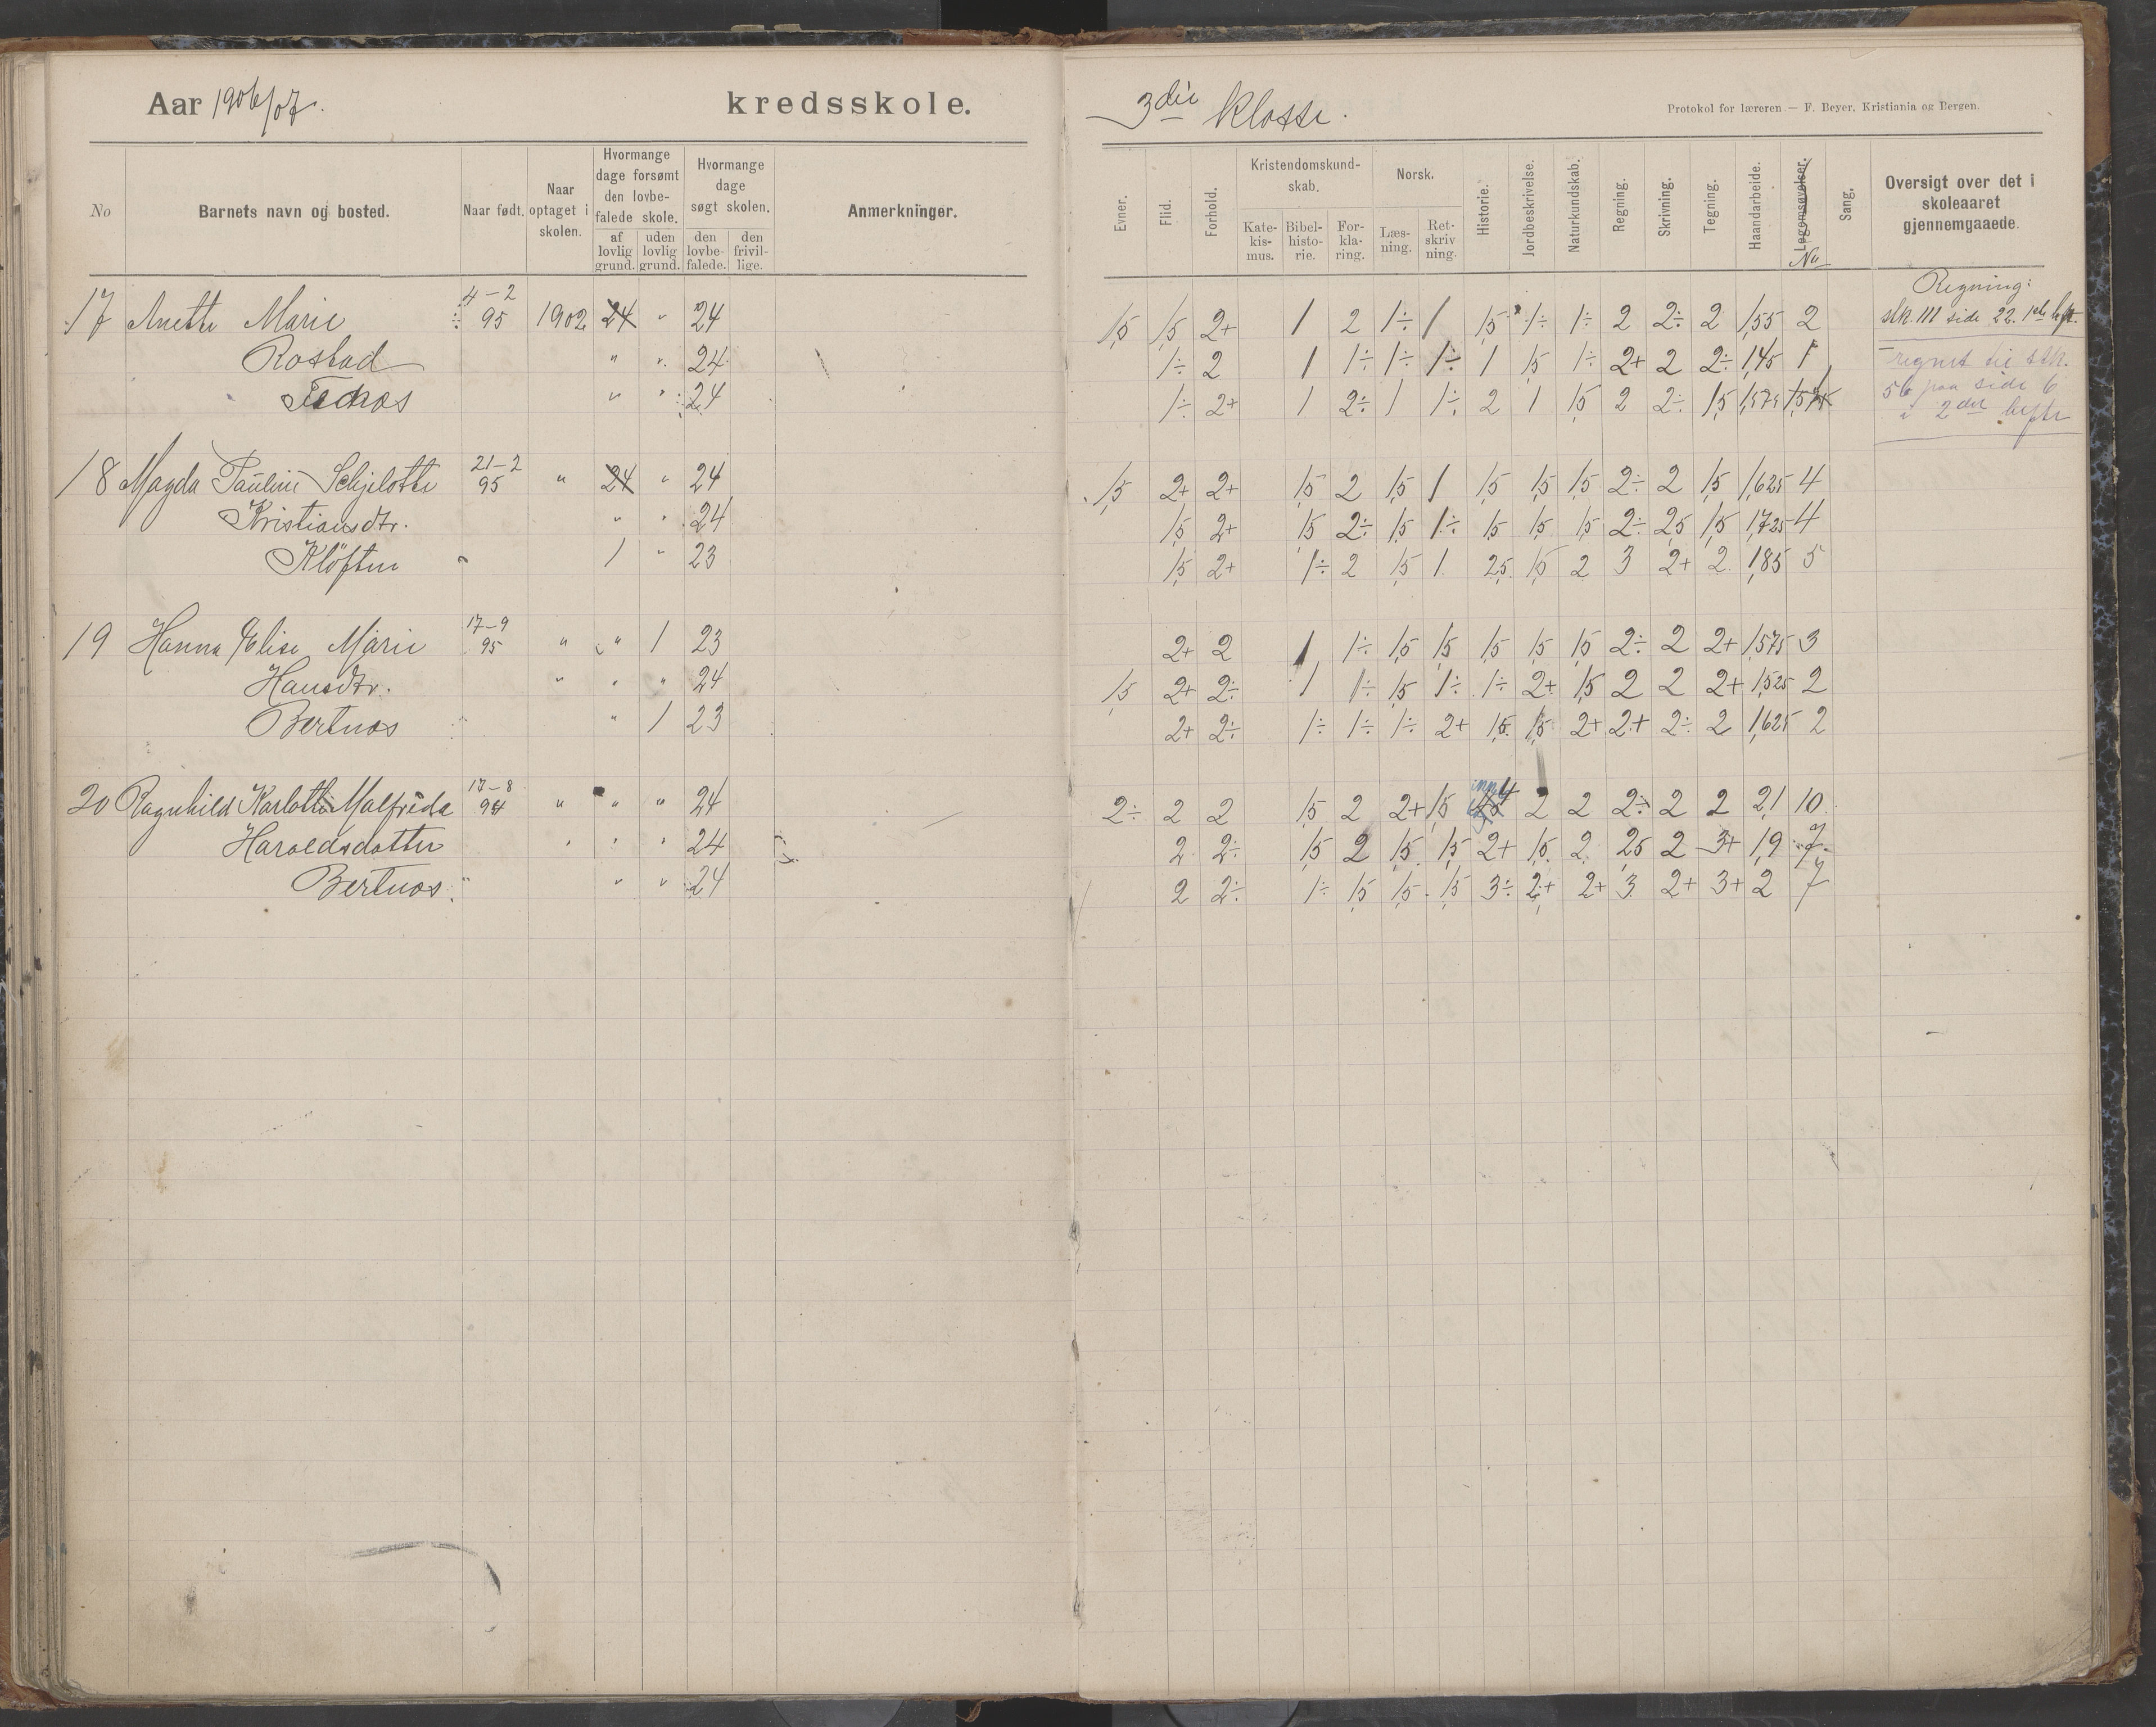 Aar 1906/07. kredsskole.
No
Barnets navn og bosted.
Naar født.
Naar optaget i skolen.
Hvormange dage forsømt den lovbefalede skole.
af lovlig grund.
uden lovlig grund.
Hvormange dage søgt skolen.
den lovbefalede.
den frivillige.
Anmerkninger.
17 Anette Marie 4-2 95 1902 24 " 24
Rostad " " 24
" " 24
18 Magda Pauline Schjelotte 21-2 95 " 24 " 24
Kristiansdtr. " " 24
Kløften 1 " 23
19 Hanna Elise Marie 17-9 95 " " 1 23
Hansdtr. " " " 24
Bertnæs " 1 23
20 Ragnhild Karlotte Malfrida 17-8 94 " " " 24
Haraldsdatter " " " 24
Bertnæs " " 24
3die Klasse.
Protokol for læreren — F. Beyer, Kristiania og Bergen.
Evner.
Flid.
Forhold.
Kristendomskundskab.
Katekismus.
Bibelhistorie.
Forklaring.
Norsk.
Læsning.
Retskrivning.
Historie.
Jordbeskrivelse.
Naturkundskab.
Regning.
Skrivning.
Tegning.
Haandarbeide.
Legemsøvelser.
No
Sang.
Oversigt over det i skoleaaret gjennemgaaede.
1,5 1,5 2+ 1 2 1÷ 1 1,5 1÷ 1÷ 2 2÷ 2 1,55 2
1÷ 2 1 1÷ 1÷ 1÷ 1 1,5 1÷ 2+ 2 2÷ 1,45 1
1÷ 2+ 1 2÷ 1 1÷ 2 1 1,5 2 2÷ 1,5 1,575
1,5 2+ 2+ 1,5 2 1,5 1 1,5 1,5 1,5 2÷ 2 1,5 1,625 4
1,5 2+ 1,5 2÷ 1,5 1÷ 1,5 1,5 1,5 2÷ 2,5 1,5 1,725 4
1,5 2+ 1÷ 2 1,5 1 2,5 1,5 2 3 2+ 2 1,85 5
2+ 2 1 1÷ 1,5 1,5 1,5 1,5 1,5 2÷ 2 2+ 1,575 3
1,5 2+ 2÷ 1 1÷ 1,5 1÷ 1÷ 2+ 1,5 2 2 2+ 1,525 2
2+ 2÷ 1÷ 1÷ 1÷ 2+ 1,5 1,5 2+ 2+ 2÷ 2 1,625 2
2÷ 2 2 1,5 2 2+ 1,5 2 2 2÷ 2 2 2,1 10
2 2÷ 1,5 2 1,5 1,5 2+ 1,5 2 2,5 2 3+ 1,9 7
2 2÷ 1÷ 1,5 1,5 1,5 3÷ 2+ 2+ 3 2+ 3+ 2 7
Regning:
stk. 111 side 22. 1ste heft.
regnet til stk.
56 paa side 6
i 2det hefte